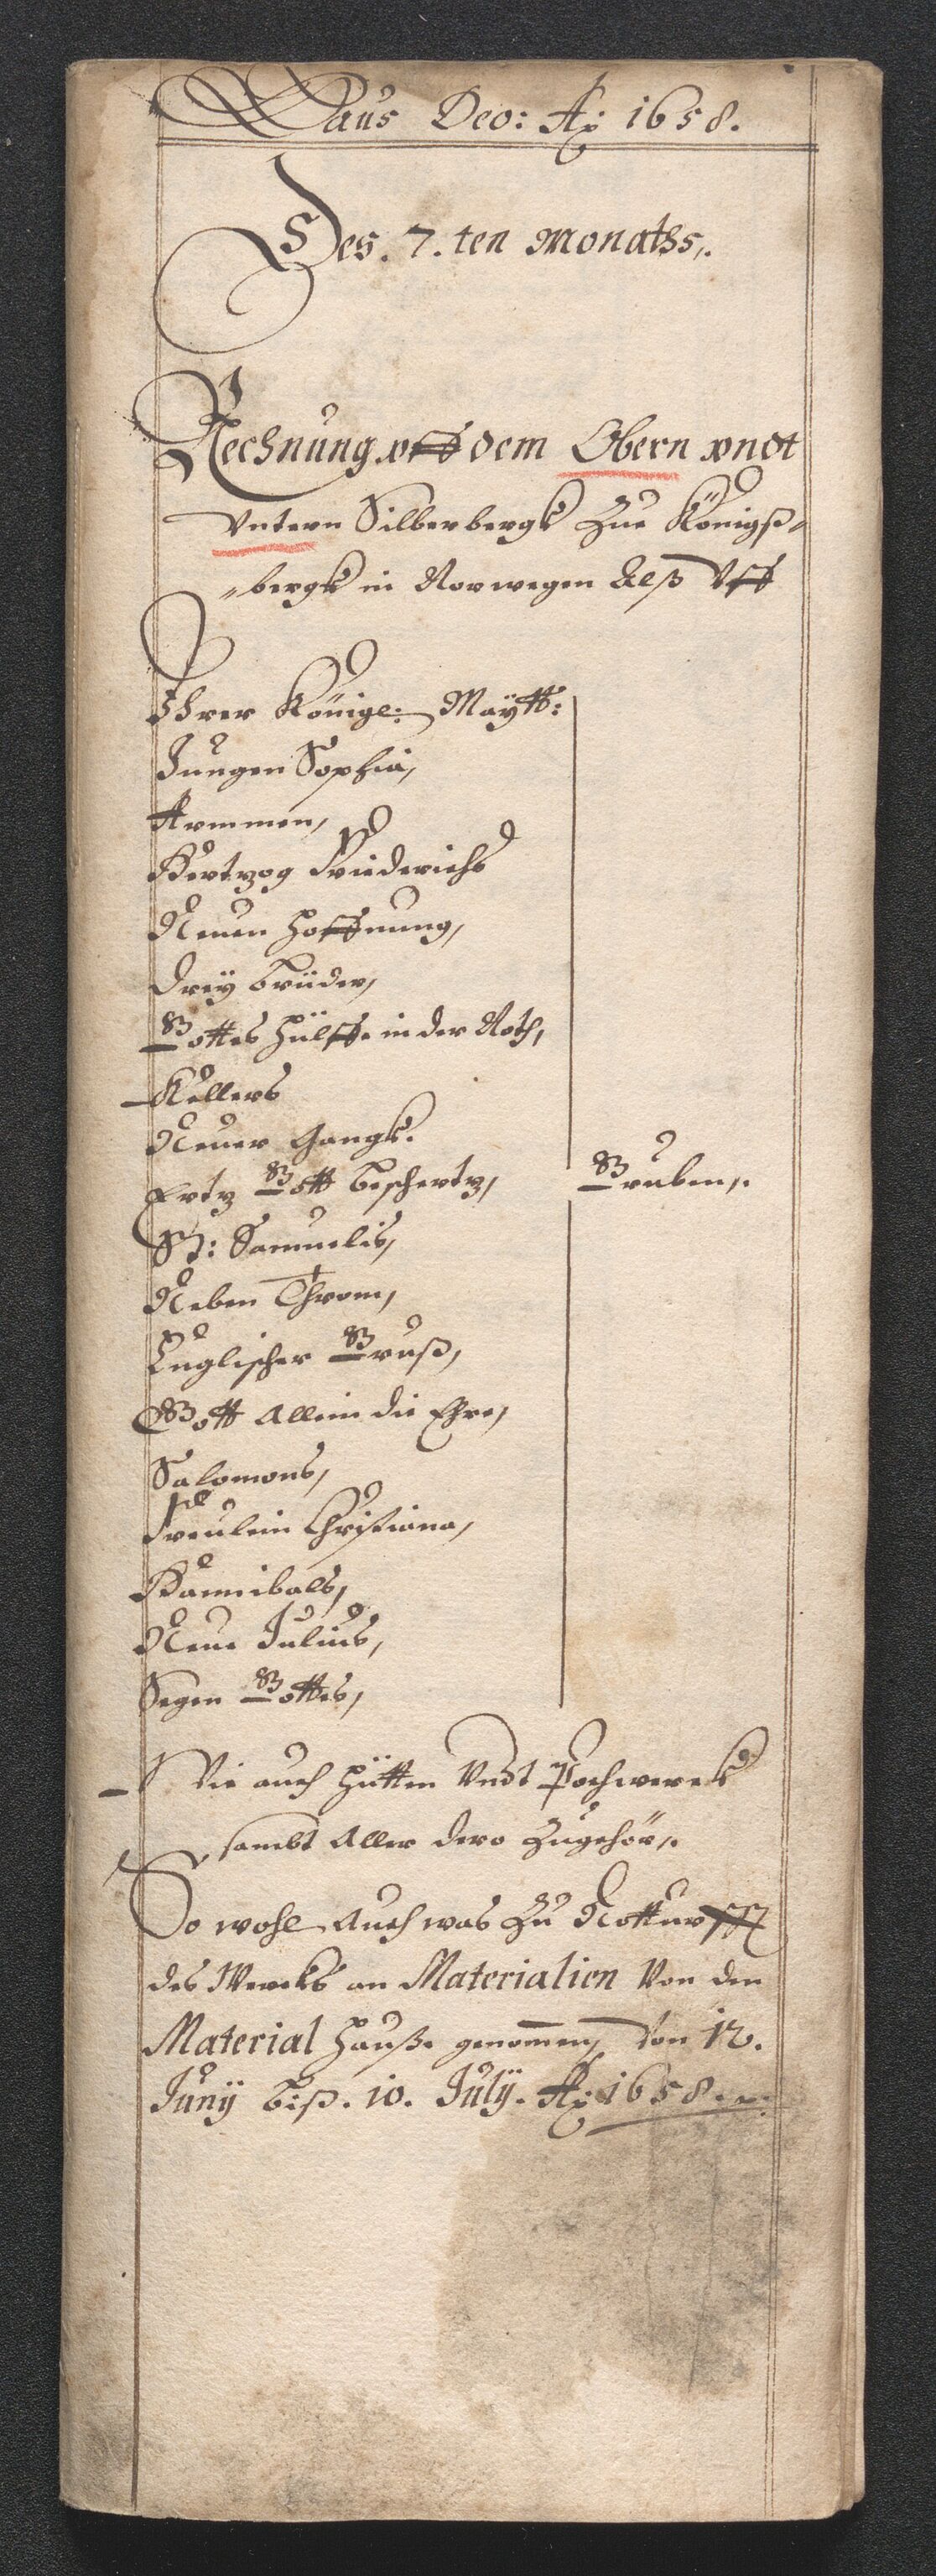 Laus Deo: Aõ 1658.
Des. 7. ten Monaths,.
Rechnung vff dem Obern vndt
Vntern Silberbergk Zue Königß-
"bergk in Norwegen Alß Vff
Ihrer Königl: Maÿtt:
Jungen Sophia,
Armmen,
Hertzog Friederichs
Neuen Hoffnung,
Dreÿ Brüder,
Gottes Hülffe in der Noth,
Kellers
Neuer Gangk.
Ertz Gott Beschertz,
Gruben,.
St: Samuelis,
Neben Throm,
Englischer Gruß,
Gott Allein die Ehre,
Salomons,
Freulein Christiana,
Hannibals,
Neue Julius,
Segen Gottes,
Wie auch Hütten Vndt Pochwerck
sambt Aller dero Zugehör,.
So wohl Auch was Zu Notturfft
des Wercks an Materialien Von den
Material Hauße genom̄en, Von 12.
Junÿ biß. 10. Julÿ. Aõ 1658.